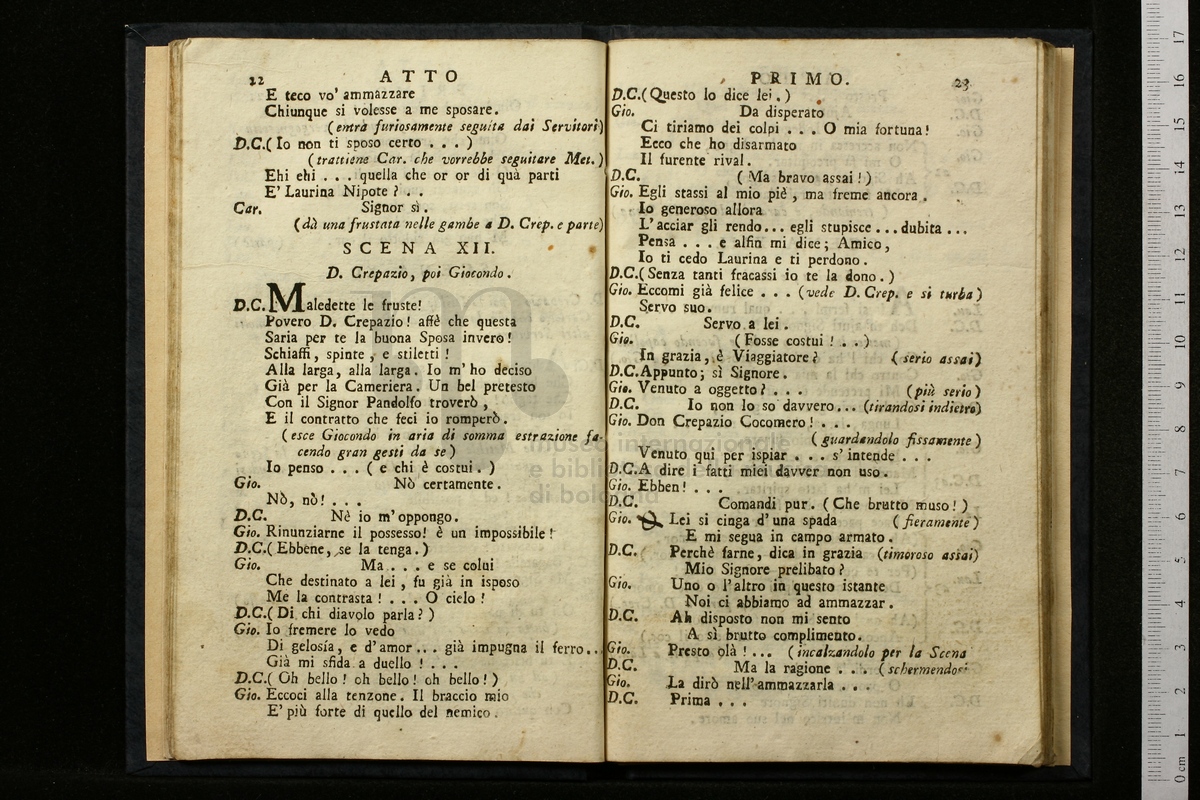 22 ATTO
E teco vo' ammazzare
Chiunque si volesse a me sposare.
(entra furiosamente seguita dai Servitori)
D.C.( Io non ti sposo certo . . . )
(trattiene Car. che vorrebbe seguitare Met.)
Ehi ehi . . . quella che or or di quà parti
E' Laurina Nipote ? . .
Car. Signor sì.
(dà una frustata nelle gambe a D. Crep. e parte)
SCENA XII.
D. Crepazio, poi Giocondo.
D.C. Maledette le fruste!
Povero D. Crepazio! affè che questa
Saria per te la buona Sposa invero!
Schiaffi, spinte, e stiletti!
Alla larga, alla larga. Io m' ho deciso
Già per la Cameriera. Un bel pretesto
Con il Signor Pandolfo troverò,
E il contratto che feci io romperò.
(esce Giocondo in aria di somma estrazione fa-
cendo gran gesti da se)
Io penso . . . ( e chi è costui. )
Gio. Nò certamente.
Nò, nò! . . .
D.C. Nè io m' oppongo.
Gio. Rinunziarne il possesso! è un impossibile!
D.C.( Ebbene, se la tenga.)
Gio. Ma . . . e se colui
Che destinato a lei, fu già in isposo
Me la contrasta! . . . O cielo!
D.C.( Di chi diavolo parla? )
Gio. Io fremere lo vedo
Di gelosía, e d'amor... già impugna il ferro...
Già mi sfida a duello! . . .
D.C.( Oh bello! oh bello! oh bello! )
Gio. Eccoci alla tenzone. Il braccio mio
E' più forte di quello del nemico.
PRIMO. 23
D.C.( Questo lo dice lei. )
Gio. Da disperato
Ci tiriamo dei colpi . . . O mia fortuna!
Ecco che ho disarmato
Il furente rival.
D.C. ( Ma bravo assai! )
Gio. Egli stassi al mio piè, ma freme ancora.
Io generoso allora
L'acciar gli rendo... egli stupisce... dubita ...
Pensa . . . e alfin mi dice; Amico,
Io ti cedo Laurina e ti perdono.
D.C.( Senza tanti fracassi io te la dono. )
Gio. Eccomi già felice . . . (vede D. Crep. e si turba)
Servo suo.
D.C. Servo a lei.
Gio. ( Fosse costui! . . )
In grazia, è Viaggiatore? ( serio assai)
D.C. Appunto; sì Signore.
Gio. Venuto a oggetto? . . . (più serio)
D.C. Io non lo so davvero... (tirandosi indietro)
Gio. Don Crepazio Cocomero! . . .
(guardandolo fissamente)
Venuto qui per ispiar . . . s'intende . . .
D.C. A dire i fatti miei davver non uso.
Gio. Ebben! . . .
D.C. Comandi pur. ( Che brutto muso! )
Gio. Lei si cinga d'una spada (fieramente)
E mi segua in campo armato.
D.C. Perchè farne, dica in grazia (timoroso assai)
Mio Signore prelibato?
Gio. Uno o l'altro in questo istante
Noi ci abbiamo ad ammazzar.
D.C. Ah disposto non mi sento
A sì brutto complimento.
Gio. Presto olà!... (incalzandolo per la Scena
D.C. Ma la ragione . . . (schermendosi
Gio. La dirò nell'ammazzarla . . .
D.C. Prima . . .